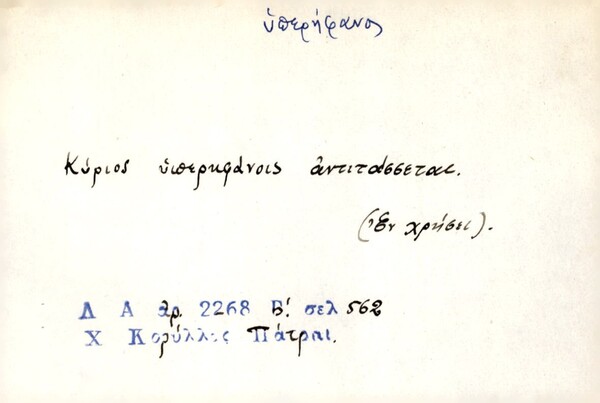 ὑπερήφανος
Κύριος ὑπερηφάνοις ἀντιτάσσεται.
(Ἐν χρήσει).
Λ Α ἀρ. 2268 Β΄. σελ 562
Χ Κορύλλος Πάτραι.